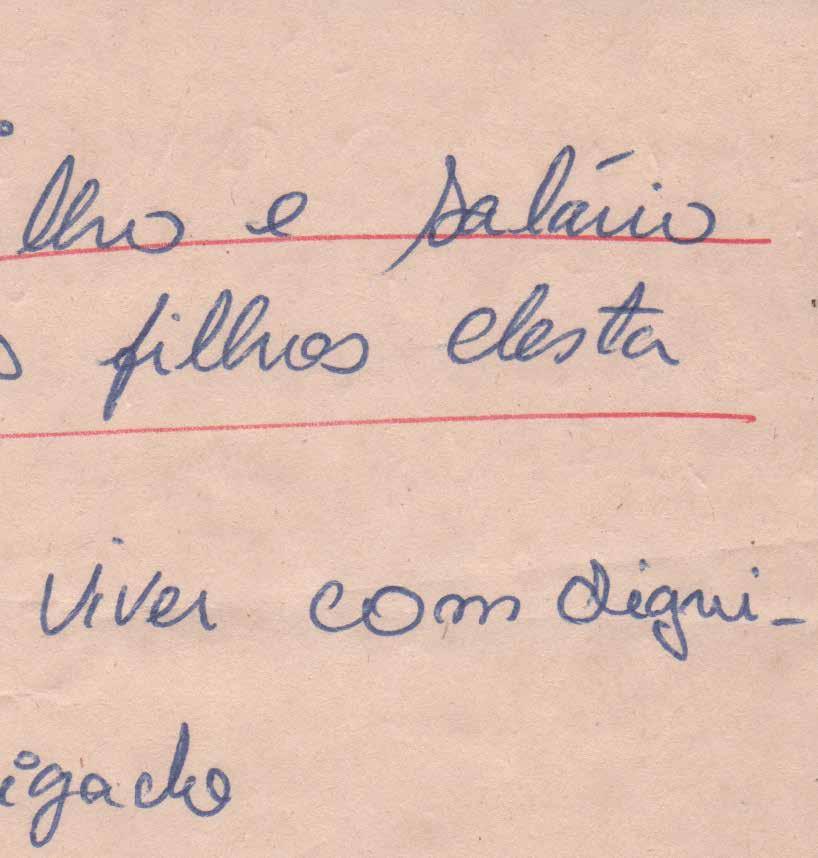 lho e salário
s filhos desta
viver com digni-
igado